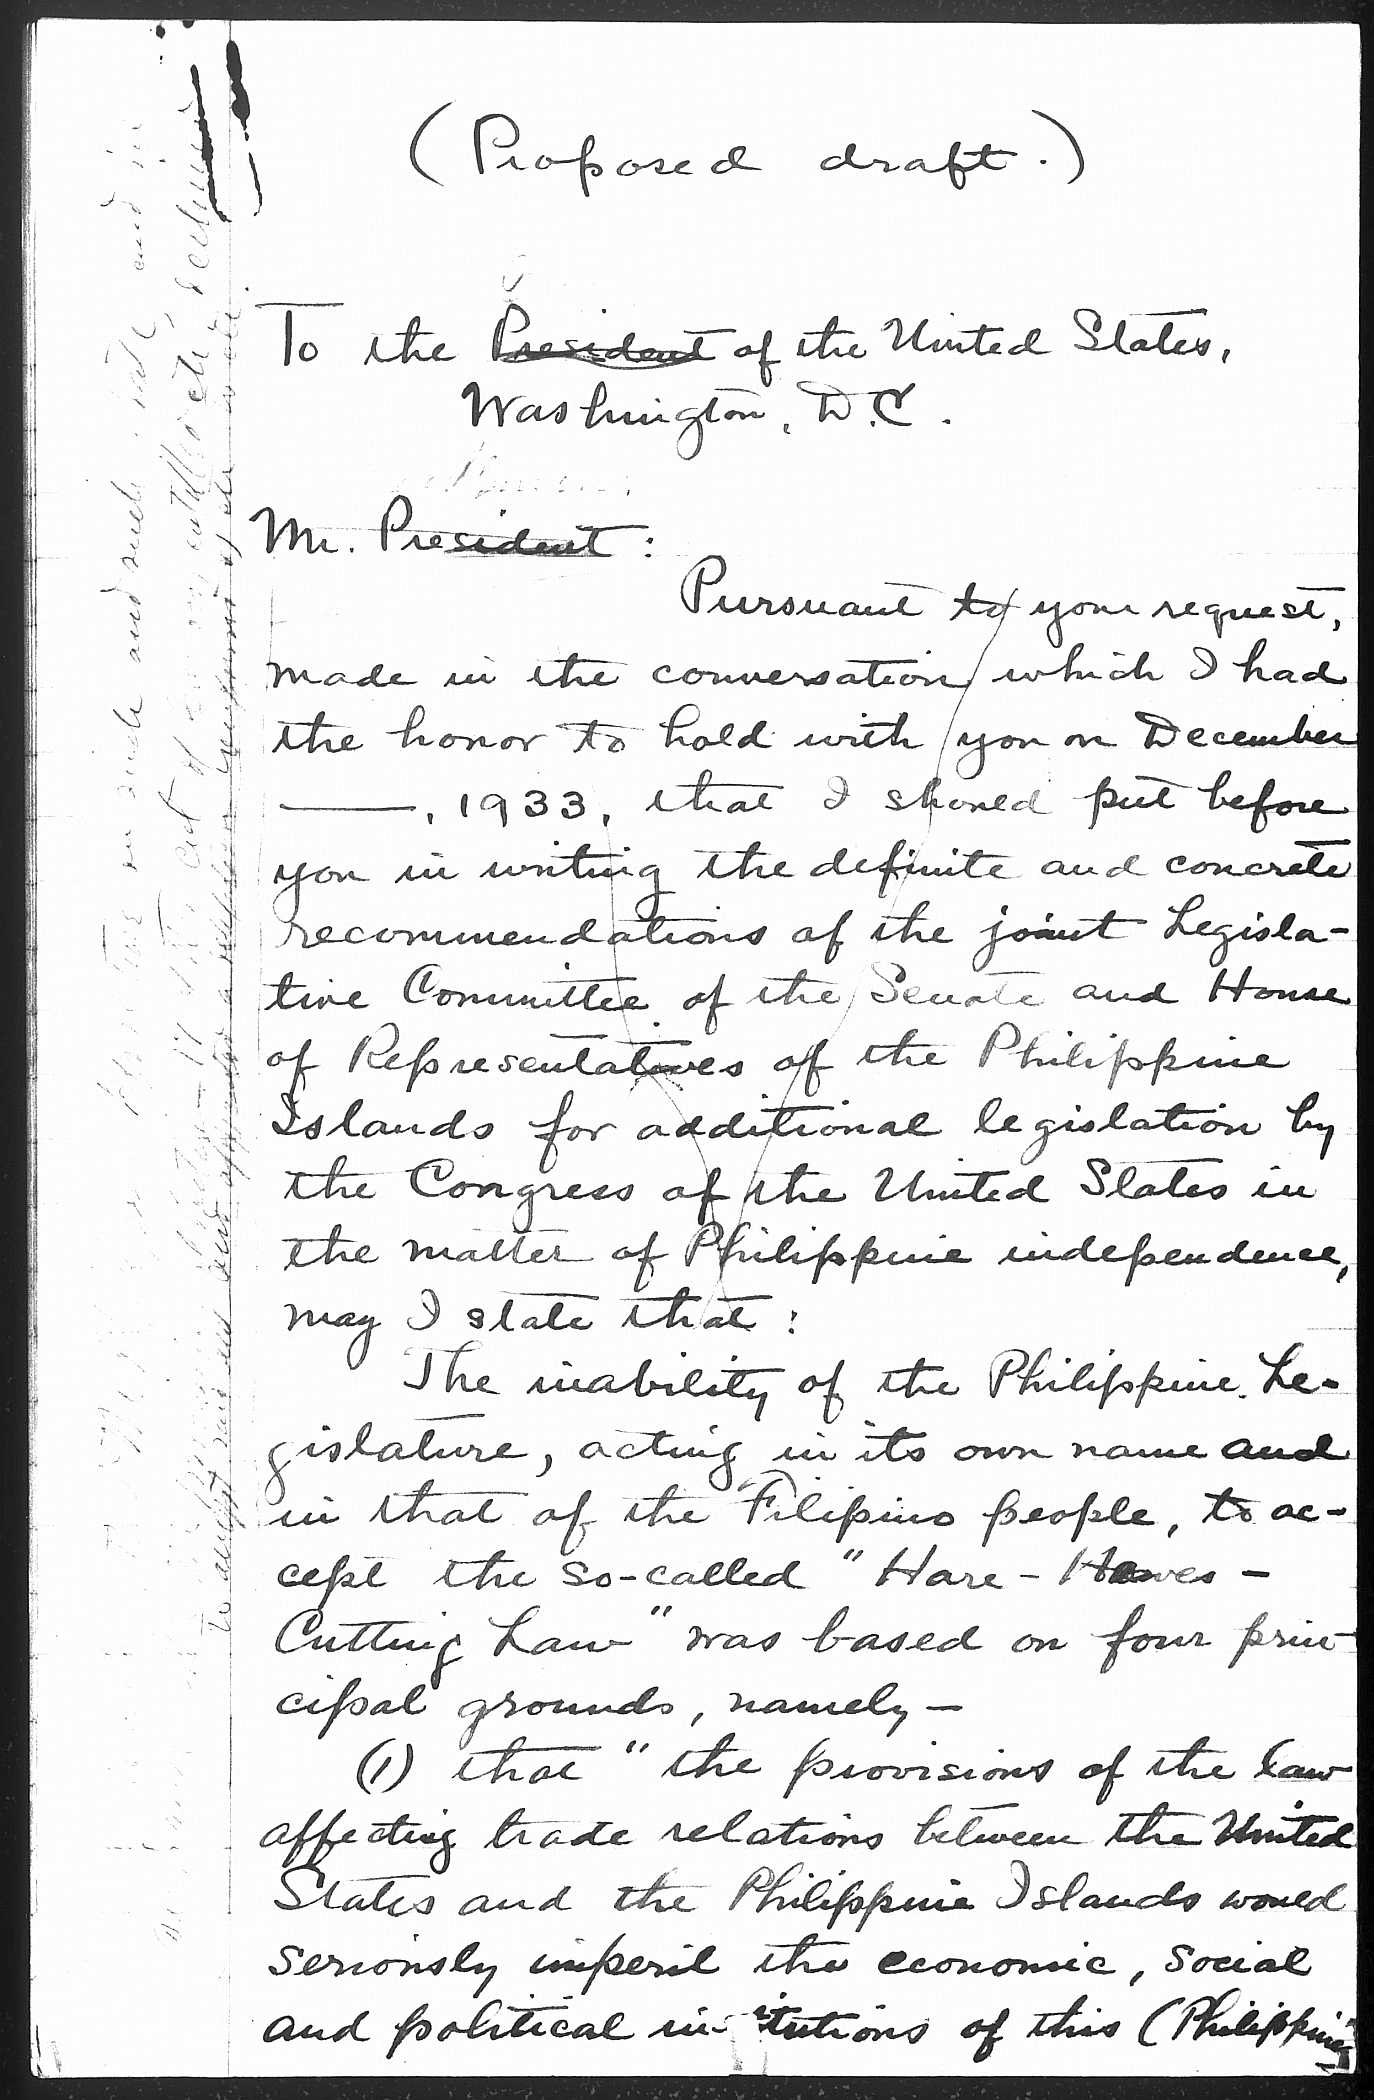 (Proposed draft.)
To the President of the United States,
Washington, D.C.
Mr. President:
Pursuant to your request,
made in the conversation which I had
the honor to hold with you on December
——, 1933, that I should put before
you in writing the definite and concrete
recommendations of the joint Legisla-
tive Committee of the Senate and House
of Representatives of the Philippine
Islands for additional legislation by
the Congress of the United States in
the matter of Philippine independence,
may I state that:
The inability of the Philippine Le-
gislature, acting in its own name and
in that of the Filipino people, to ac-
cept the so-called "Hare-Hawes-
Cutting Law" was based on four prin-
cipal grounds, namely—
(1) that "the provisions of the law
affecting trade relations between the United
States and the Philippine Islands would
seriously imperil the economic, social
and political institutions of this (Philippine